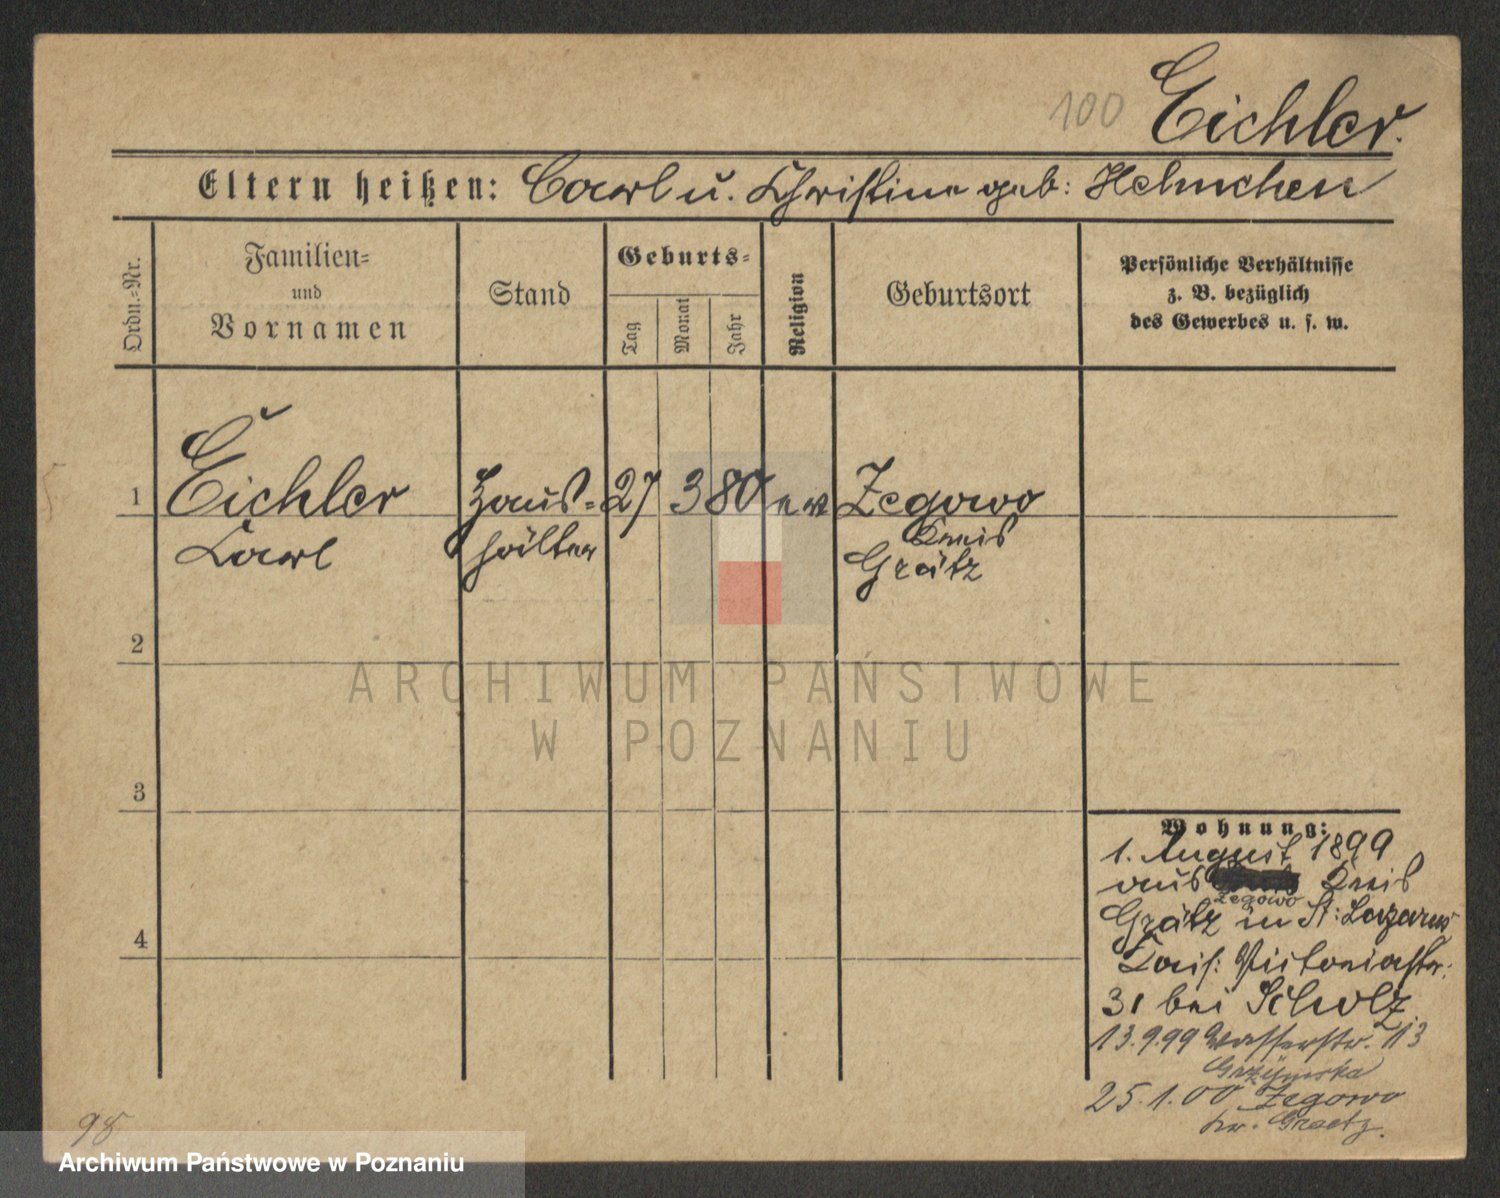 100 Eichler.
Eltern heißen: Carl u. Christine geb: Helmchen
Ordn.=Nr.
Familien=
und
Vornamen
Stand
Geburts=
Tag
Monat
Jahr
Religion
Geburtsort
Persönliche Verhältnisse
z. B. bezüglich
des Gewerbes u. s. w.
1 Eichler Haus= 27 3 80 ev Zegowo
Carl hälter Kreis
Grätz
2
3
4
Wohnung:
1. August 1899
aus Kreis
Zegowo
Grätz in St: Lazarus
Kais: Victoriastr:
31 bei Scholz
13.9.99 Wasserstr. 13
25.1.00 Zegowo
kr. Graetz.
98
ARCHIWUM PAŃSTWOWE
W POZNANIU
Archiwum Państwowe w Poznaniu